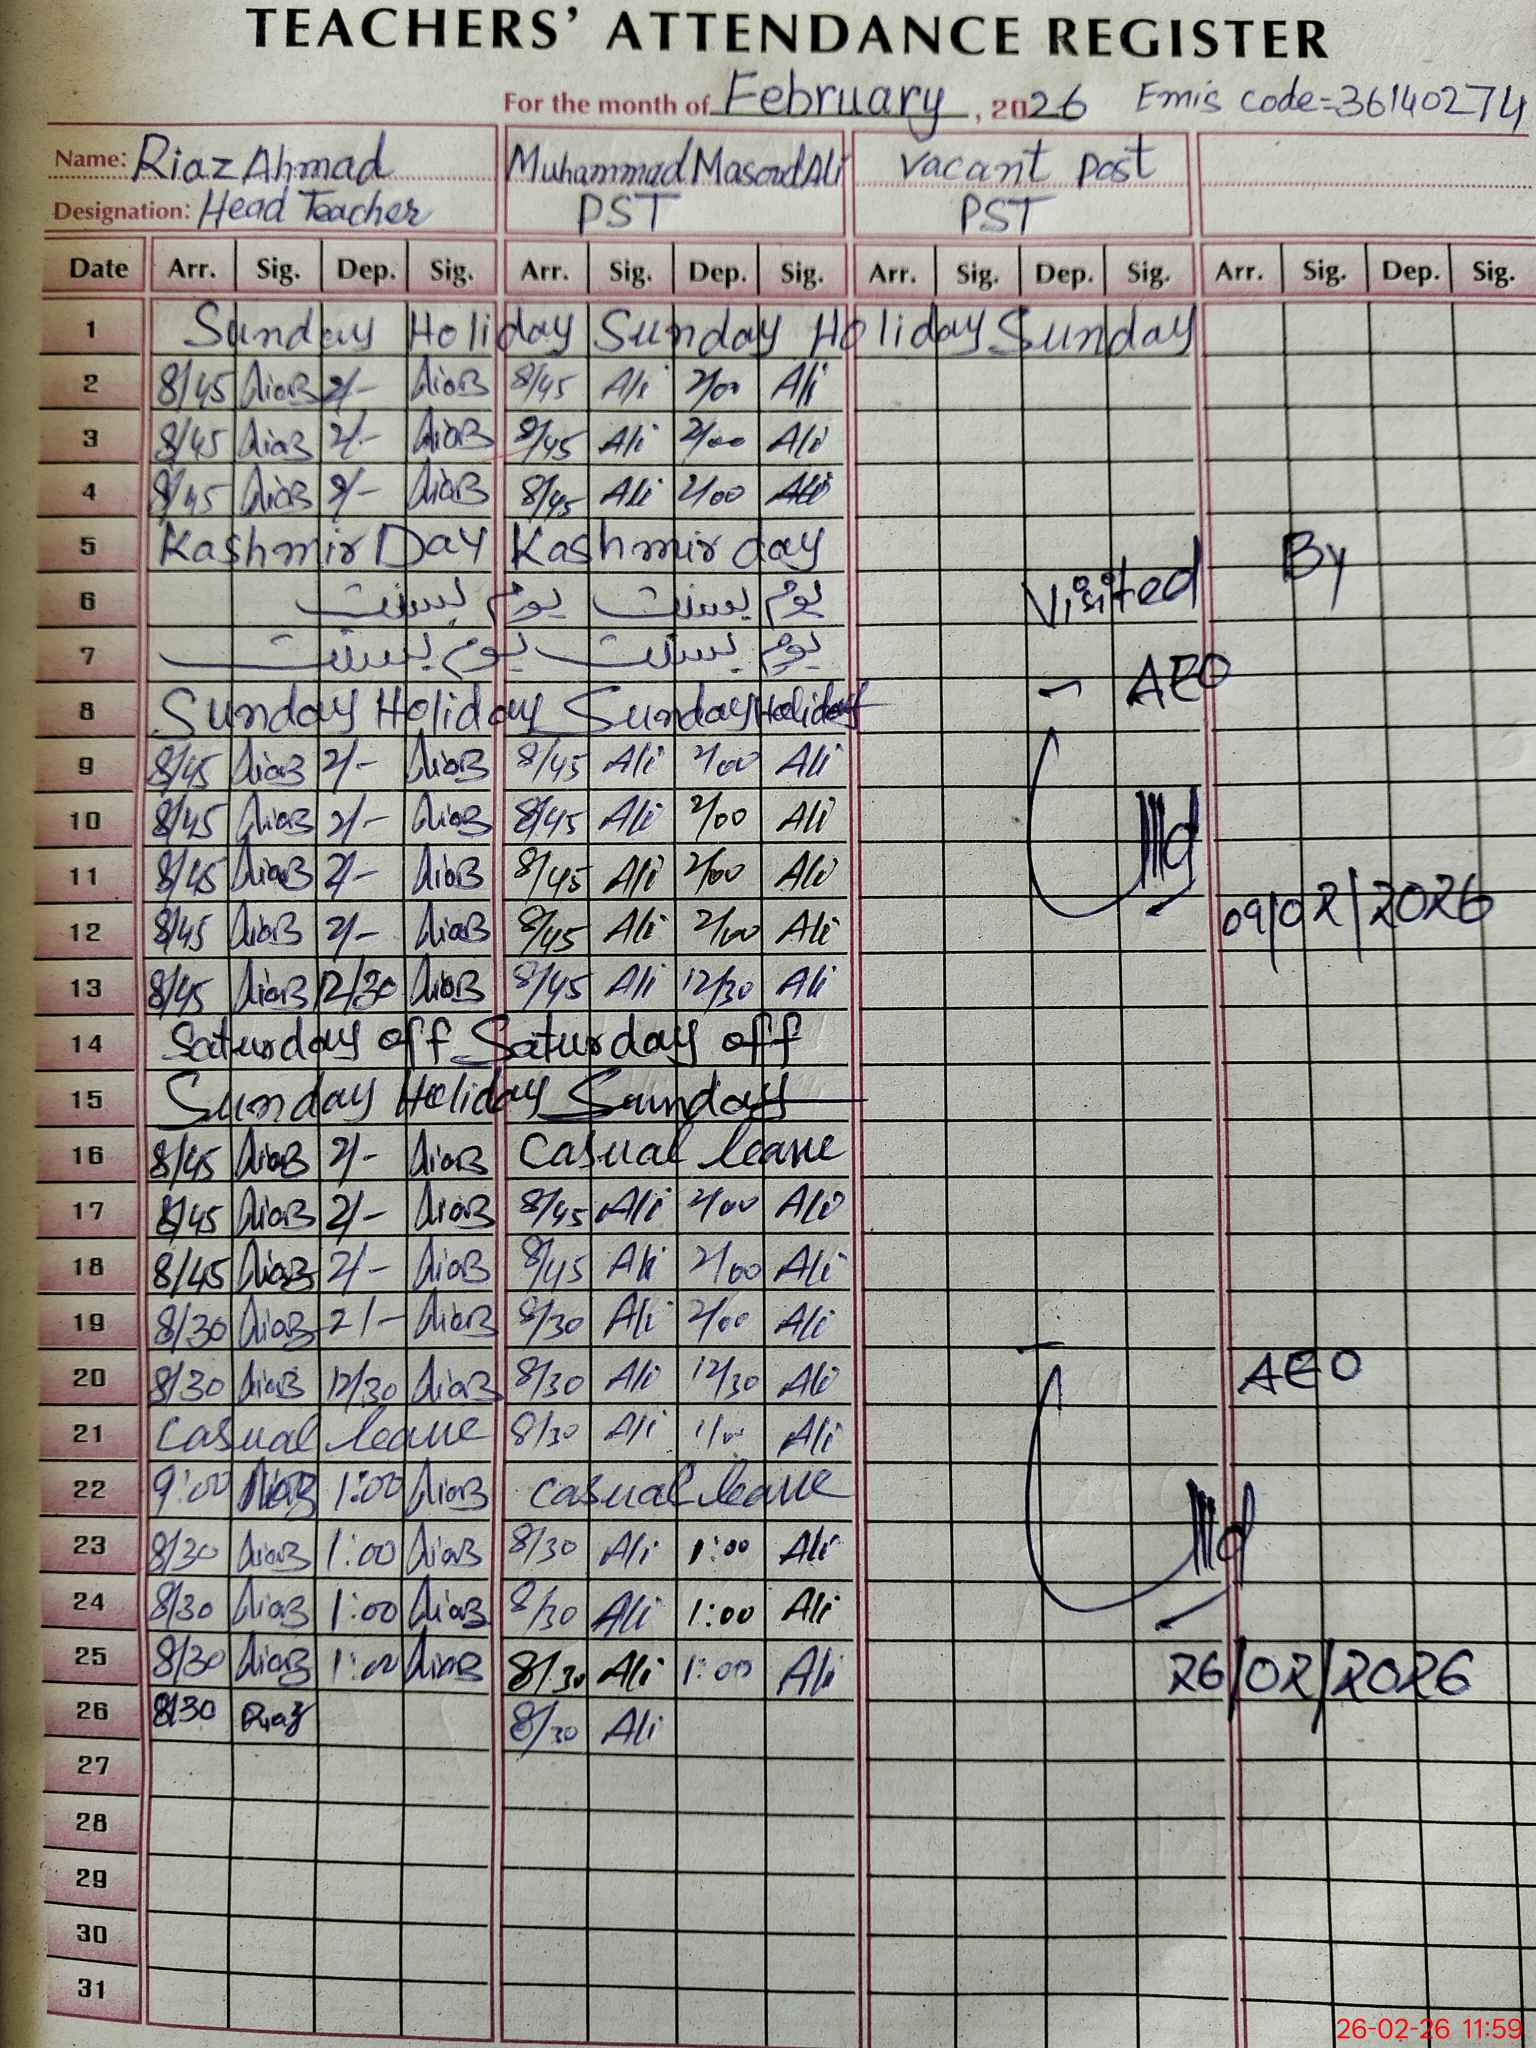 TEACHERS' ATTENDANCE REGISTER
For the month of February, 2026 Emis code=36140274
Name: Riaz Ahmad Muhammad Masood Ali Vacant Post
Designation: Head Teacher PST PST
Date Arr. Sig. Dep. Sig. Arr. Sig. Dep. Sig. Arr. Sig. Dep. Sig. Arr. Sig. Dep. Sig.
1 Sunday Holiday Sunday Holiday Sunday
2 8/45 2/- 8/45 Ali 2/00 Ali
3 8/45 2/- 8/45 Ali 2/00 Ali
4 8/45 2/- 8/45 Ali 2/00 Ali
5 Kashmir Day Kashmir day
6 يوم بسنت يوم بسنت
Visited By
7 يوم بسنت يوم بسنت
AEO
8 Sunday Holiday Sunday Holiday
9 8/45 2/- 8/45 Ali 2/00 Ali
10 8/45 2/- 8/45 Ali 2/00 Ali
11 8/45 2/- 8/45 Ali 2/00 Ali
12 8/45 2/- 8/45 Ali 2/00 Ali
09/02/2026
13 8/45 12/30 8/45 Ali 12/30 Ali
14 Saturday off Saturday off
15 Sunday Holiday Sunday
16 8/45 2/- Casual leave
17 8/45 2/- 8/45 Ali 2/00 Ali
18 8/45 2/- 8/45 Ali 2/00 Ali
19 8/30 2/- 8/30 Ali 2/00 Ali
20 8/30 12/30 8/30 Ali 12/30 Ali
AEO
21 Casual leave 8/30 Ali 1/00 Ali
22 9:00 1:00 casual leave
23 8/30 1:00 8/30 Ali 1:00 Ali
24 8/30 1:00 8/30 Ali 1:00 Ali
25 8/30 1:00 8/30 Ali 1:00 Ali
26/02/2026
26 8/30 Riaz 8/30 Ali
27
28
29
30
31
26-02-26 11:59